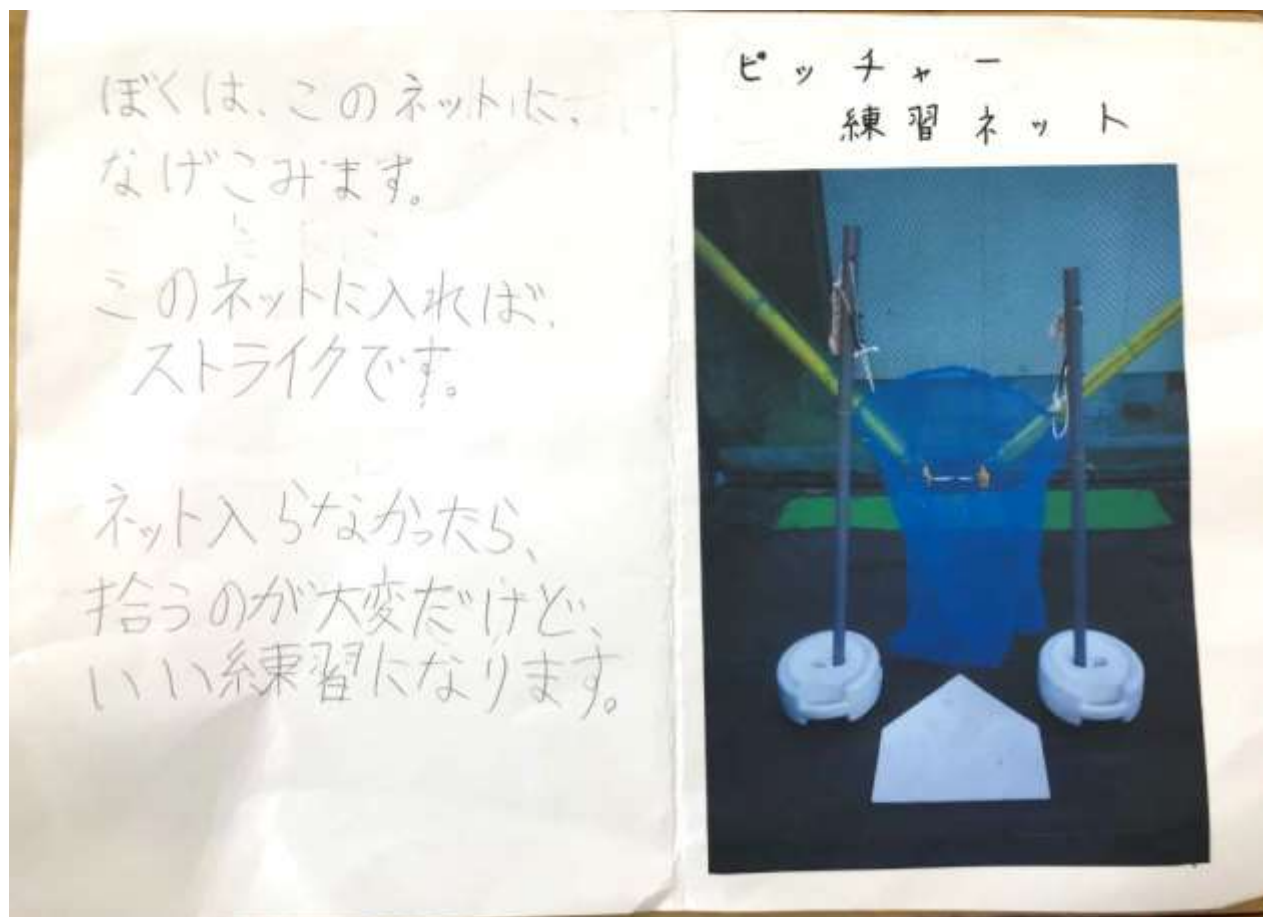 ぼくは、このネットに、
なげこみます。
このネットに入れば、
ストライクです。
ネット入らなかったら、
拾うのが大変だけど、
いい練習になります。
ピッチャー
練習ネット